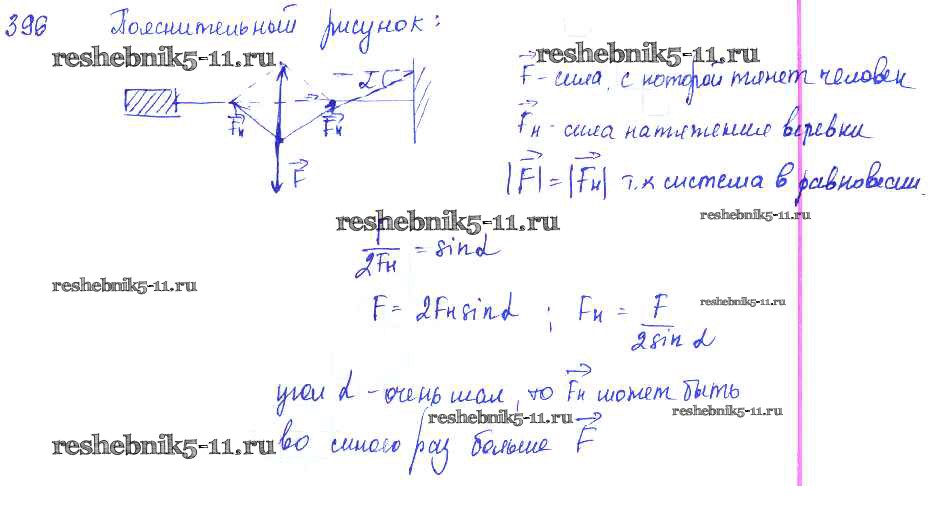 396 Пояснительный рисунок:
reshebnik5-11.ru
reshebnik5-11.ru
F - сила, с которой тянет человек
α
Fн
Fн
F
Fн - сила натяжения веревки
|F| = |Fн| т.к система в равновесии.
reshebnik5-11.ru
reshebnik5-11.ru
F/2Fн = sinα
reshebnik5-11.ru
reshebnik5-11.ru
F = 2Fнsinα ; Fн = F/2sinα
угол α - очень мал, то Fн может быть
reshebnik5-11.ru
reshebnik5-11.ru
reshebnik5-11.ru
во много раз больше F